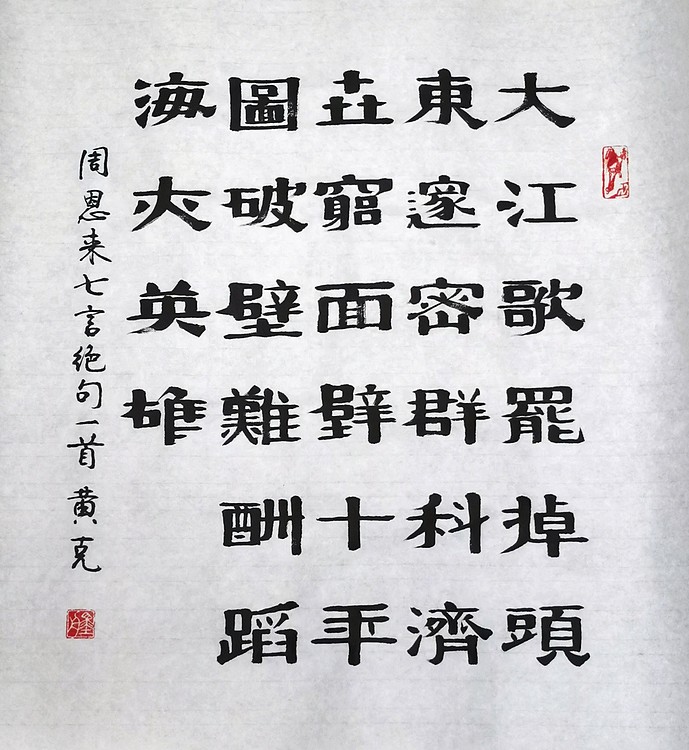 大江歌罷掉頭
東邃密群科濟
世窮面壁十年
圖破壁難酬蹈
海亦英雄
周恩来七言绝句一首 黄克